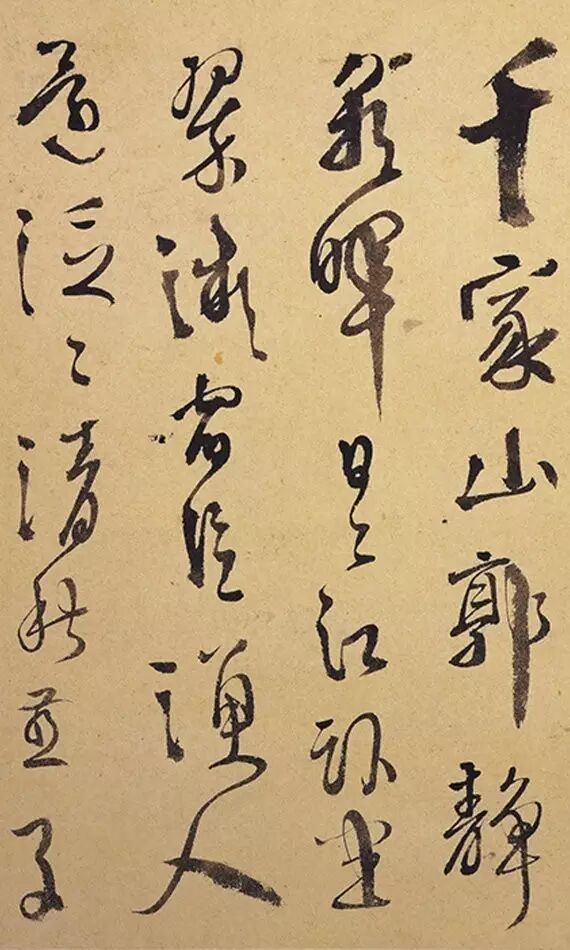 千家山郭靜
朝暉日〻江臥坐
翠微宿信漁人
還泛〻清秋燕子